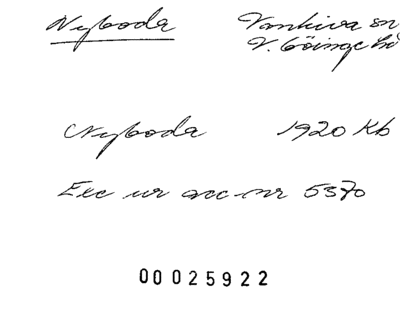 Nyboda Vankiva sn
V. Göinge hd
Nyboda 1920 Kb
Exc ur acc-nr 5370
00025922